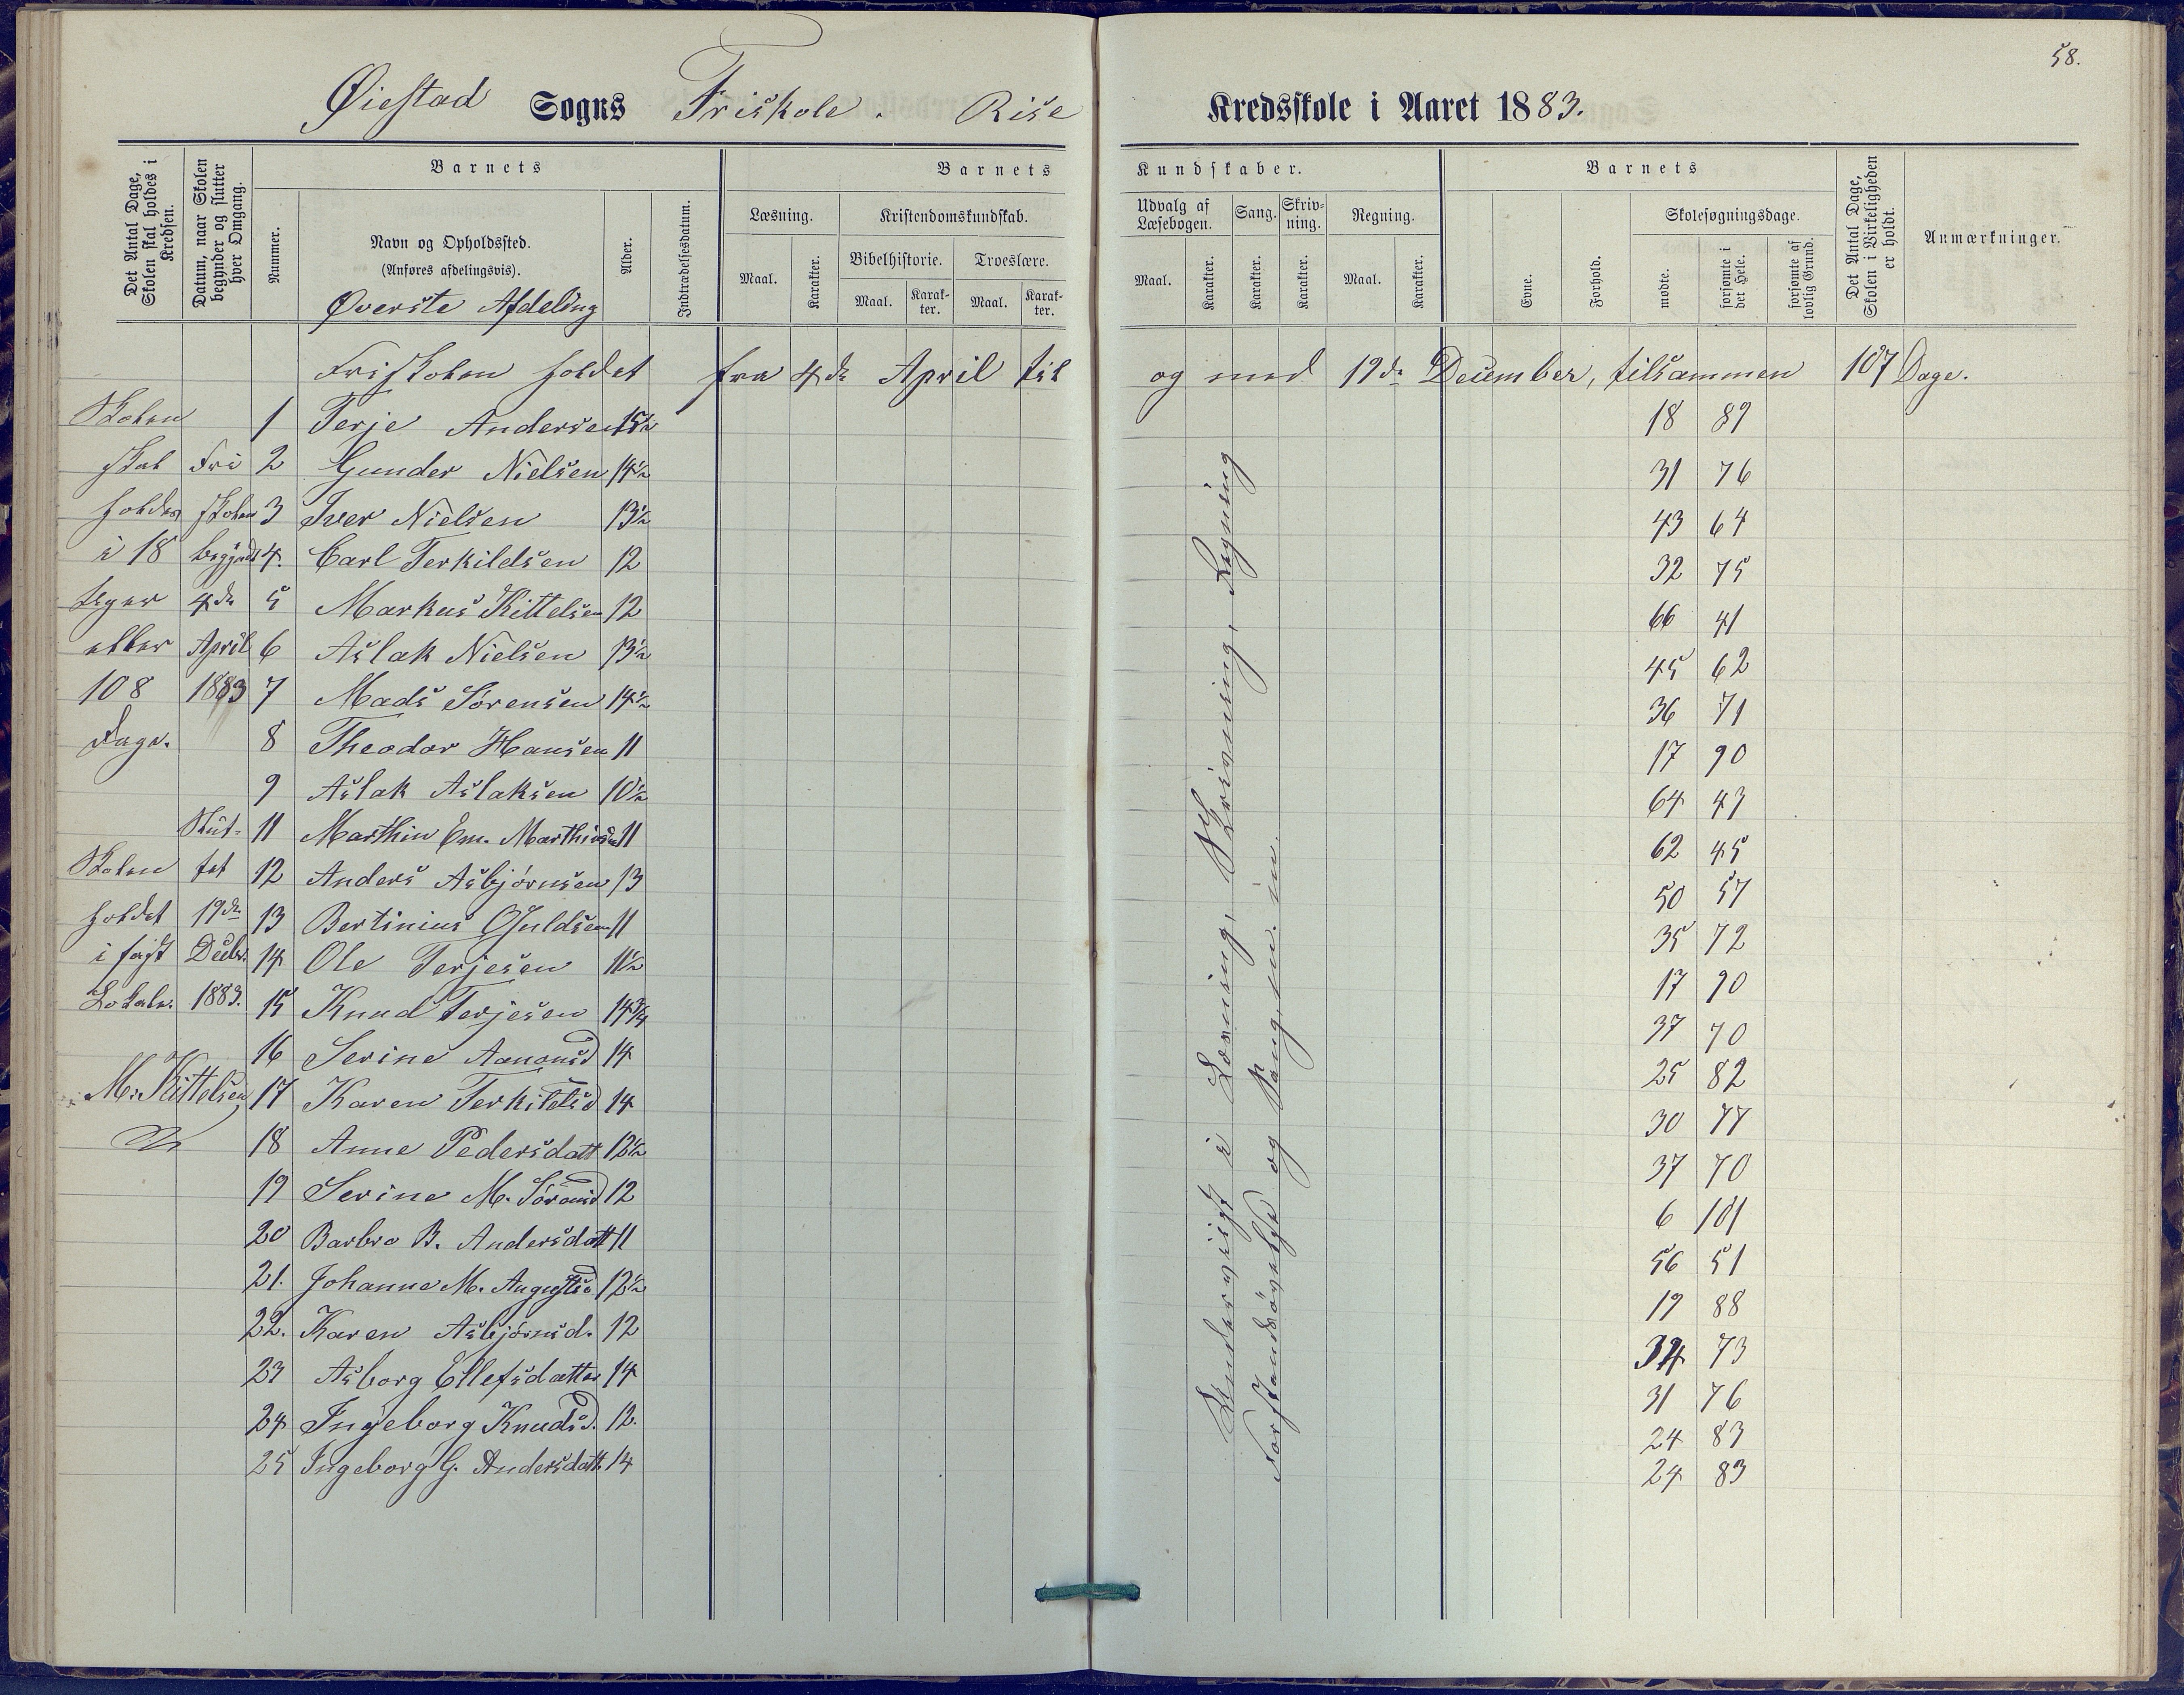 58.
Øiestad Sogns Friskole. Rise Kredsskole i Aaret 1883.
Det Antal Dage, Skolen skal holdes i Kredsen.
Datum, naar Skolen begynder og slutter hver Omgang.
Barnets
Nummer.
Navn og Opholdssted.
(Anføres afdelingsvis).
Øverste Afdeling
Alder.
Indtrædelsesdatum.
Barnets Kundskaber.
Læsning.
Maal.
Karakter.
Kristendomskundskab.
Bibelhistorie.
Maal.
Karakter.
Troeslære.
Maal.
Karakter.
Udvalg af Læsebogen.
Maal.
Karakter.
Sang.
Karakter.
Skrivning.
Karakter.
Regning.
Maal.
Karakter.
Barnets
Evne.
Forhold.
Skolesøgningsdage.
mødte.
forsømte i det Hele.
forsømte af lovlig Grund.
Det Antal Dage, Skolen i Virkeligheden er holdt.
Anmærkninger.
Friskolen holdet fra 4de April til og med 19de December, tilsammen 107 Dage.
Skolen skal holdes i 18 Uger eller 108 Dage.
Friskolen begyndt 4de April 1883
Sluttet 19de Decbr. 1883.
Skolen holdet i fast Lokale.
M. Kittelsen
1 Terje Andersen 15½ 18 89
2 Gunder Nielsen 14½ 31 76
3 Iver Nielsen 13½ 43 64
4. Carl Terkildsen 12 32 75
5 Markus Kittelsen 12 66 41
6 Aslak Nielsen 13½ 45 62
7 Mads Sörensen 14½ 36 71
8 Theodor Hansen 11 17 90
9 Aslak Aslaksen 10½ 64 43
11 Marthin Em. Marthinsen 11 62 45
12 Anders Asbjörnsen 13 50 57
13 Bertinius Guldsen 11 35 72
14 Ole Terjesen 11½ 17 90
15 Knud Terjesen 14¾ 37 70
16 Serine Aanonsd 14 25 82
17 Karen Terkildsd 14 30 77
18 Anne Pedersdatt 12½ 37 70
19 Serine M. Sörensd 12 6 101
20 Barbro B. Andersdatt 11 56 51
21. Johanne M. Augustsd 12½ 19 88
22. Karen Asbjörnsd. 12 34 73
23 Asborg Ellefsdatter 14 31 76
24 Ingeborg Knudsd. 12. 24 83
25 Ingeborg G. Andersdatt. 14 24 83
Undervist i Læsning, Skrivning, Regning
Forstandsøvelse og Sang, m. m.